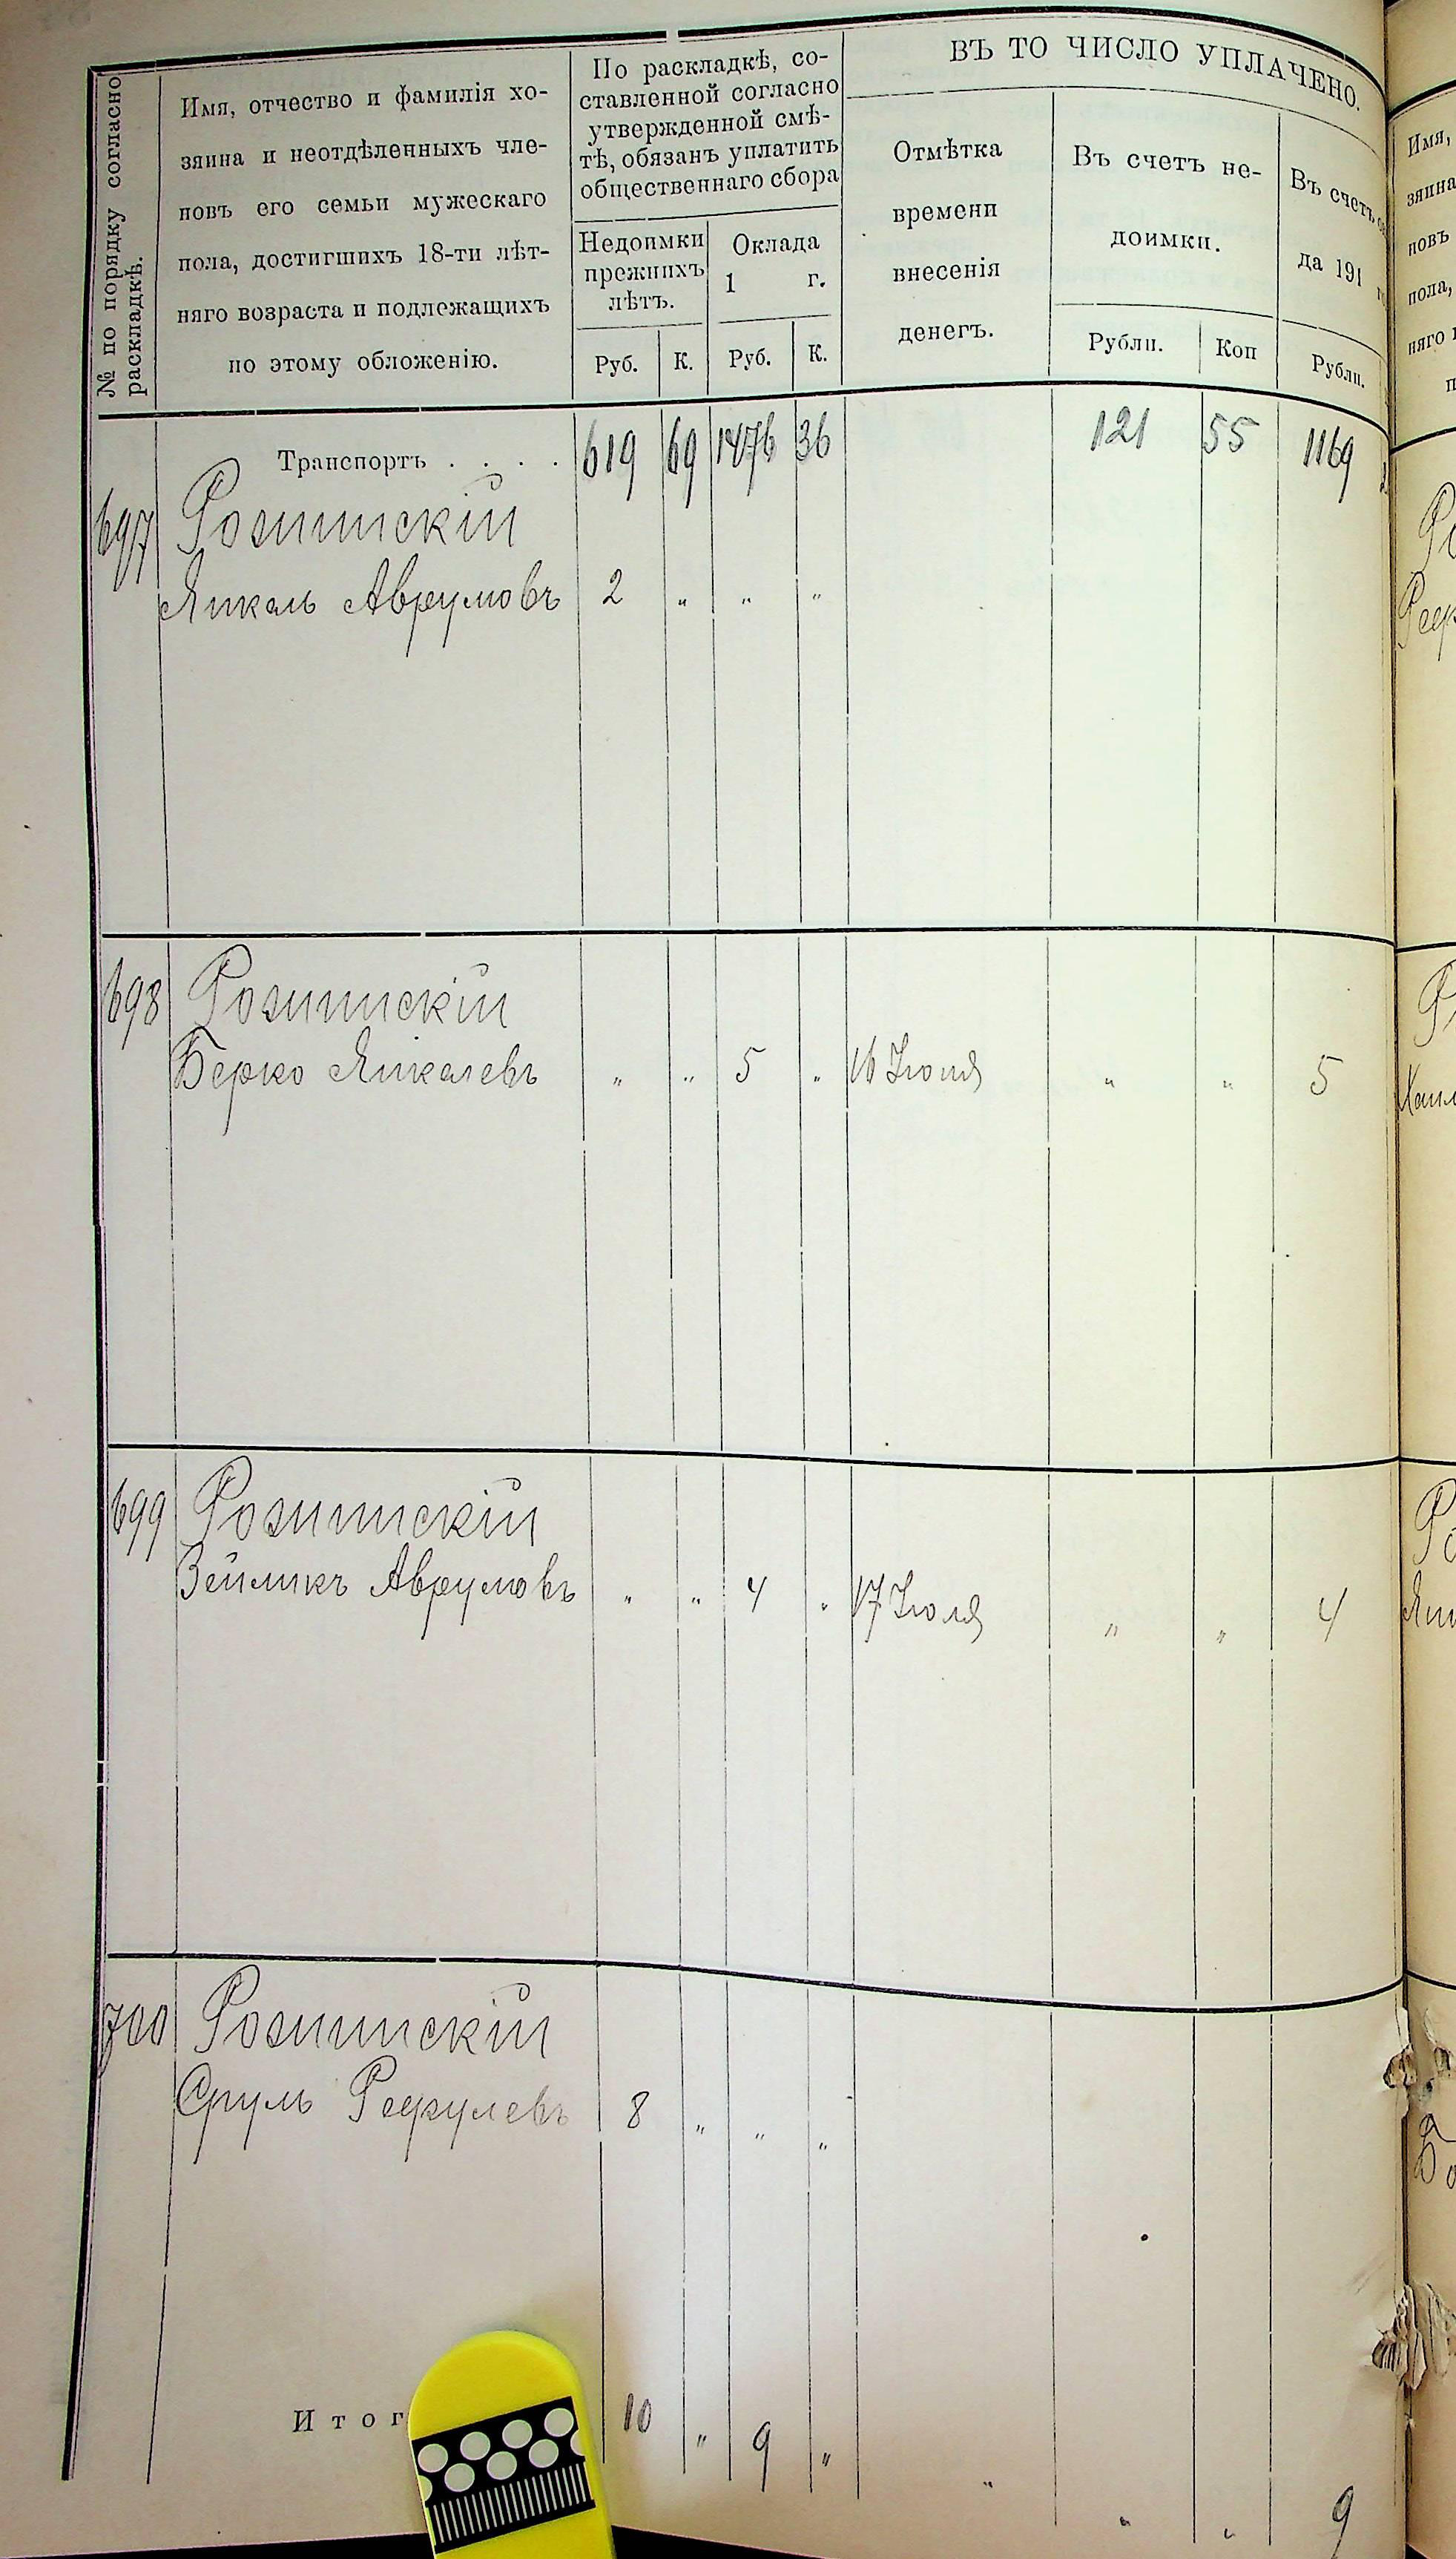 № по порядку согласно
раскладкѣ.
Имя, отчество и фамилія хо-
зяина и неотдѣленныхъ чле-
новъ его семьи мужескаго
пола, достигшихъ 18-ти лѣт-
няго возраста и подлежащихъ
по этому обложенію.
По раскладкѣ, со-
ставленной согласно
утвержденной смѣ-
тѣ, обязанъ уплатить
общественнаго сбора
Недоимки
прежнихъ
лѣтъ.
Оклада
1 г.
Руб. К. Руб. К.
ВЪ ТО ЧИСЛО УПЛАЧЕНО.
Отмѣтка
времени
внесенія
денегъ.
Въ счетъ не-
доимки.
Рубли. Коп
Въ счетъ
да 191
Рубли.
Транспортъ . . . . 619 69 1476 36 121 55 1169
697 Розминскій
Янкель Аврумовъ 2 " " "
698 Розминскій
Берко Янкелевъ " " 5 " 16 Іюля " " 5
699 Розминскій
Зейликъ Аврумовъ " " 4 " 17 Іюля " " 4
700 Розминскій
Сруль 8 " " "
Итог 10 " 9 " " " " 9
Имя,
зяина
новъ
пола,
няго